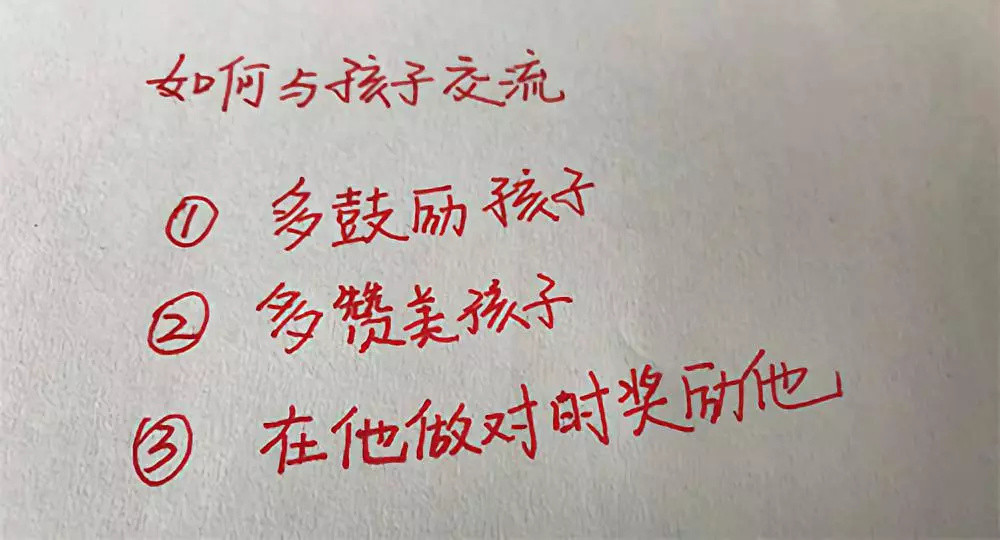 如何与孩子交流
① 多鼓励孩子
② 多赞美孩子
③ 在他做对时奖励他